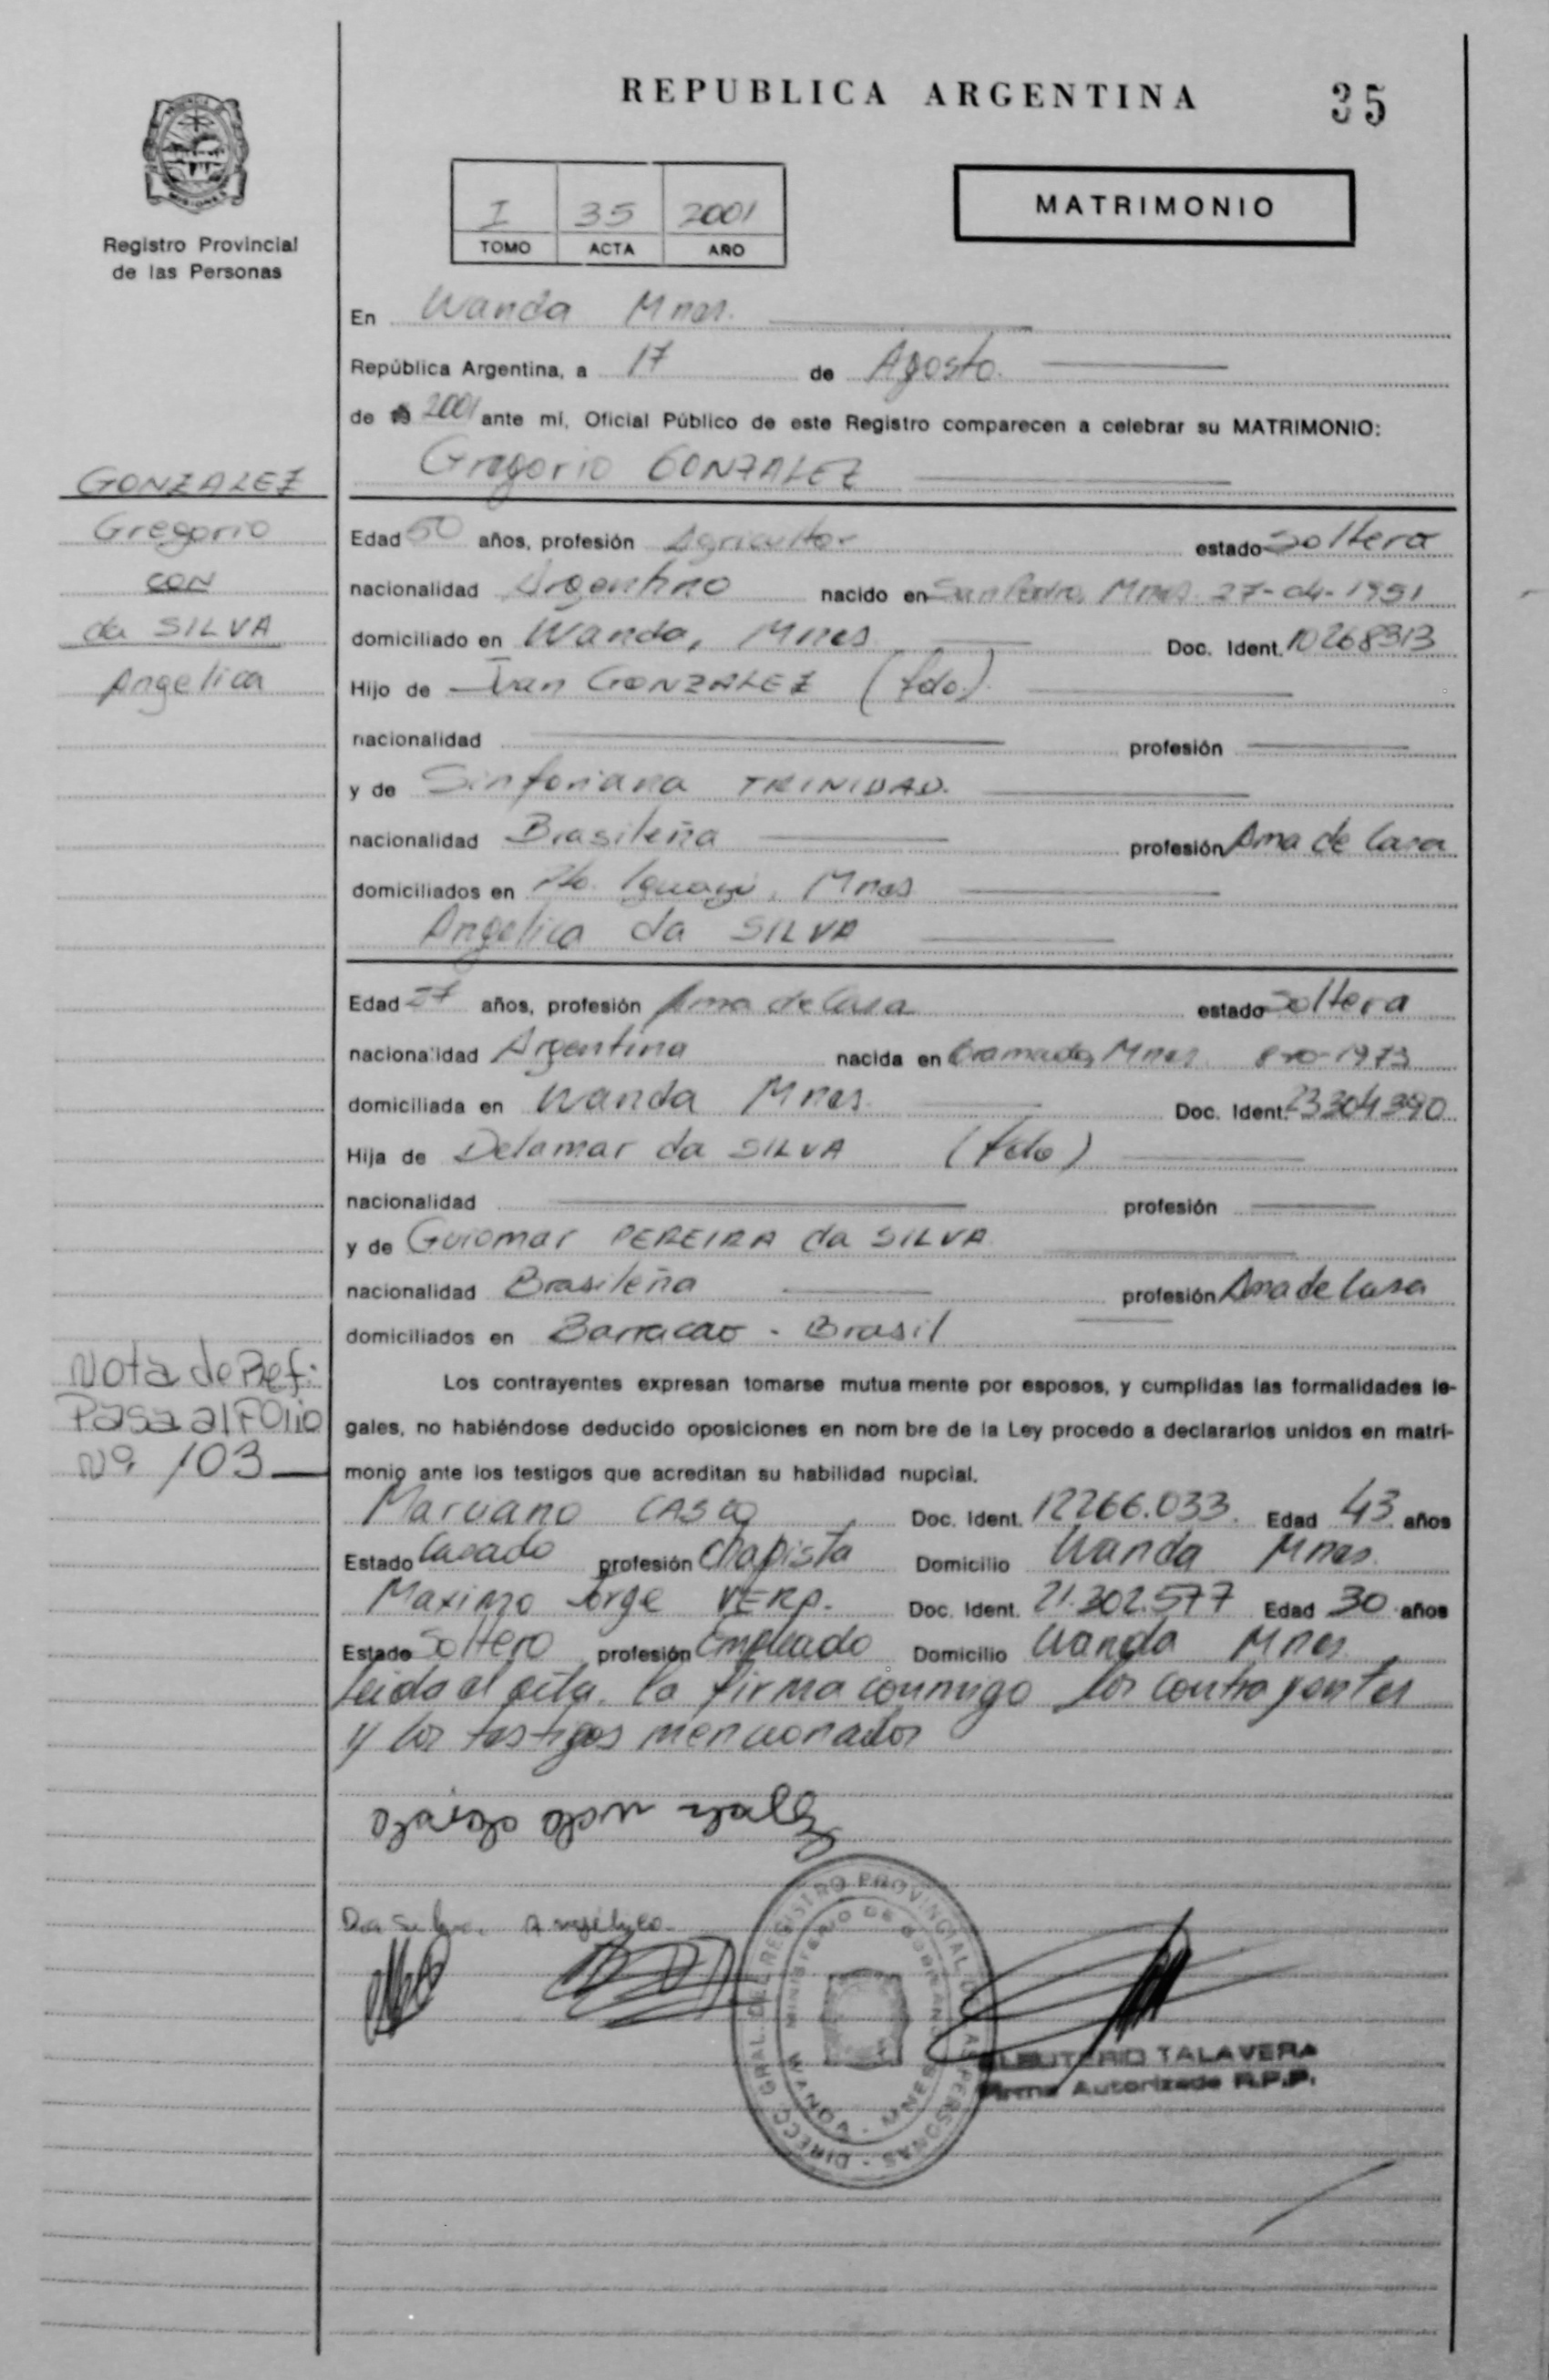 REPUBLICA ARGENTINA
35
Registro Provincial
de las Personas
I 35 2001
TOMO ACTA AÑO
MATRIMONIO
En Wanda Mnes.
República Argentina, a 17 de Agosto.
de 2001 ante mí, Oficial Público de este Registro comparecen a celebrar su MATRIMONIO:
Gregorio GONZALEZ
GONZALEZ
Gregorio
CON
da SILVA
Angelica
Edad 50 años, profesión Agricultor estado Soltero
nacionalidad Argentino nacido en San Pedro, Mnes. 27-04-1951
domiciliado en Wanda, Mnes Doc. Ident. 10268313
Hijo de Ivan GONZALEZ (fdo).
nacionalidad profesión
y de Sinforiana TRINIDAD.
nacionalidad Brasileña profesión Ama de Casa
domiciliados en Pto. Iguazu, Mnes
Angelica da SILVA
Edad 27 años, profesión Ama de Casa estado Soltera
nacionalidad Argentina nacida en Mnes. 1973
domiciliada en Wanda Mnes. Doc. Ident. 23304390
Hija de Delamar da SILVA (fdo)
nacionalidad profesión
y de Guiomar PEREIRA da SILVA
nacionalidad Brasileña profesión Ama de Casa
domiciliados en Barracao - Brasil
Nota de Ref:
Pasa al Folio
Nº 103
Los contrayentes expresan tomarse mutua mente por esposos, y cumplidas las formalidades le-
gales, no habiéndose deducido oposiciones en nom bre de la Ley procedo a declararlos unidos en matri-
monio ante los testigos que acreditan su habilidad nupcial.
Marciano CASCO Doc. Ident. 12266.033. Edad 43 años
Estado Casado profesión Chapista Domicilio Wanda Mnes.
Maximo Jorge VERA. Doc. Ident. 21.302.577 Edad 30 años
Estado Soltero profesión Empleado Domicilio Wanda Mnes.
Leida el acta. la firma conmigo los contrayentes
y los testigos mencionados
Da Silva. Angelica.
DIRECC. GRAL. DEL REGISTRO PROVINCIAL DE LAS PERSONAS
MINISTERIO DE GOBIERNO
WANDA - MNES
ELEUTERIO TALAVERA
Firma Autorizada R.P.P.